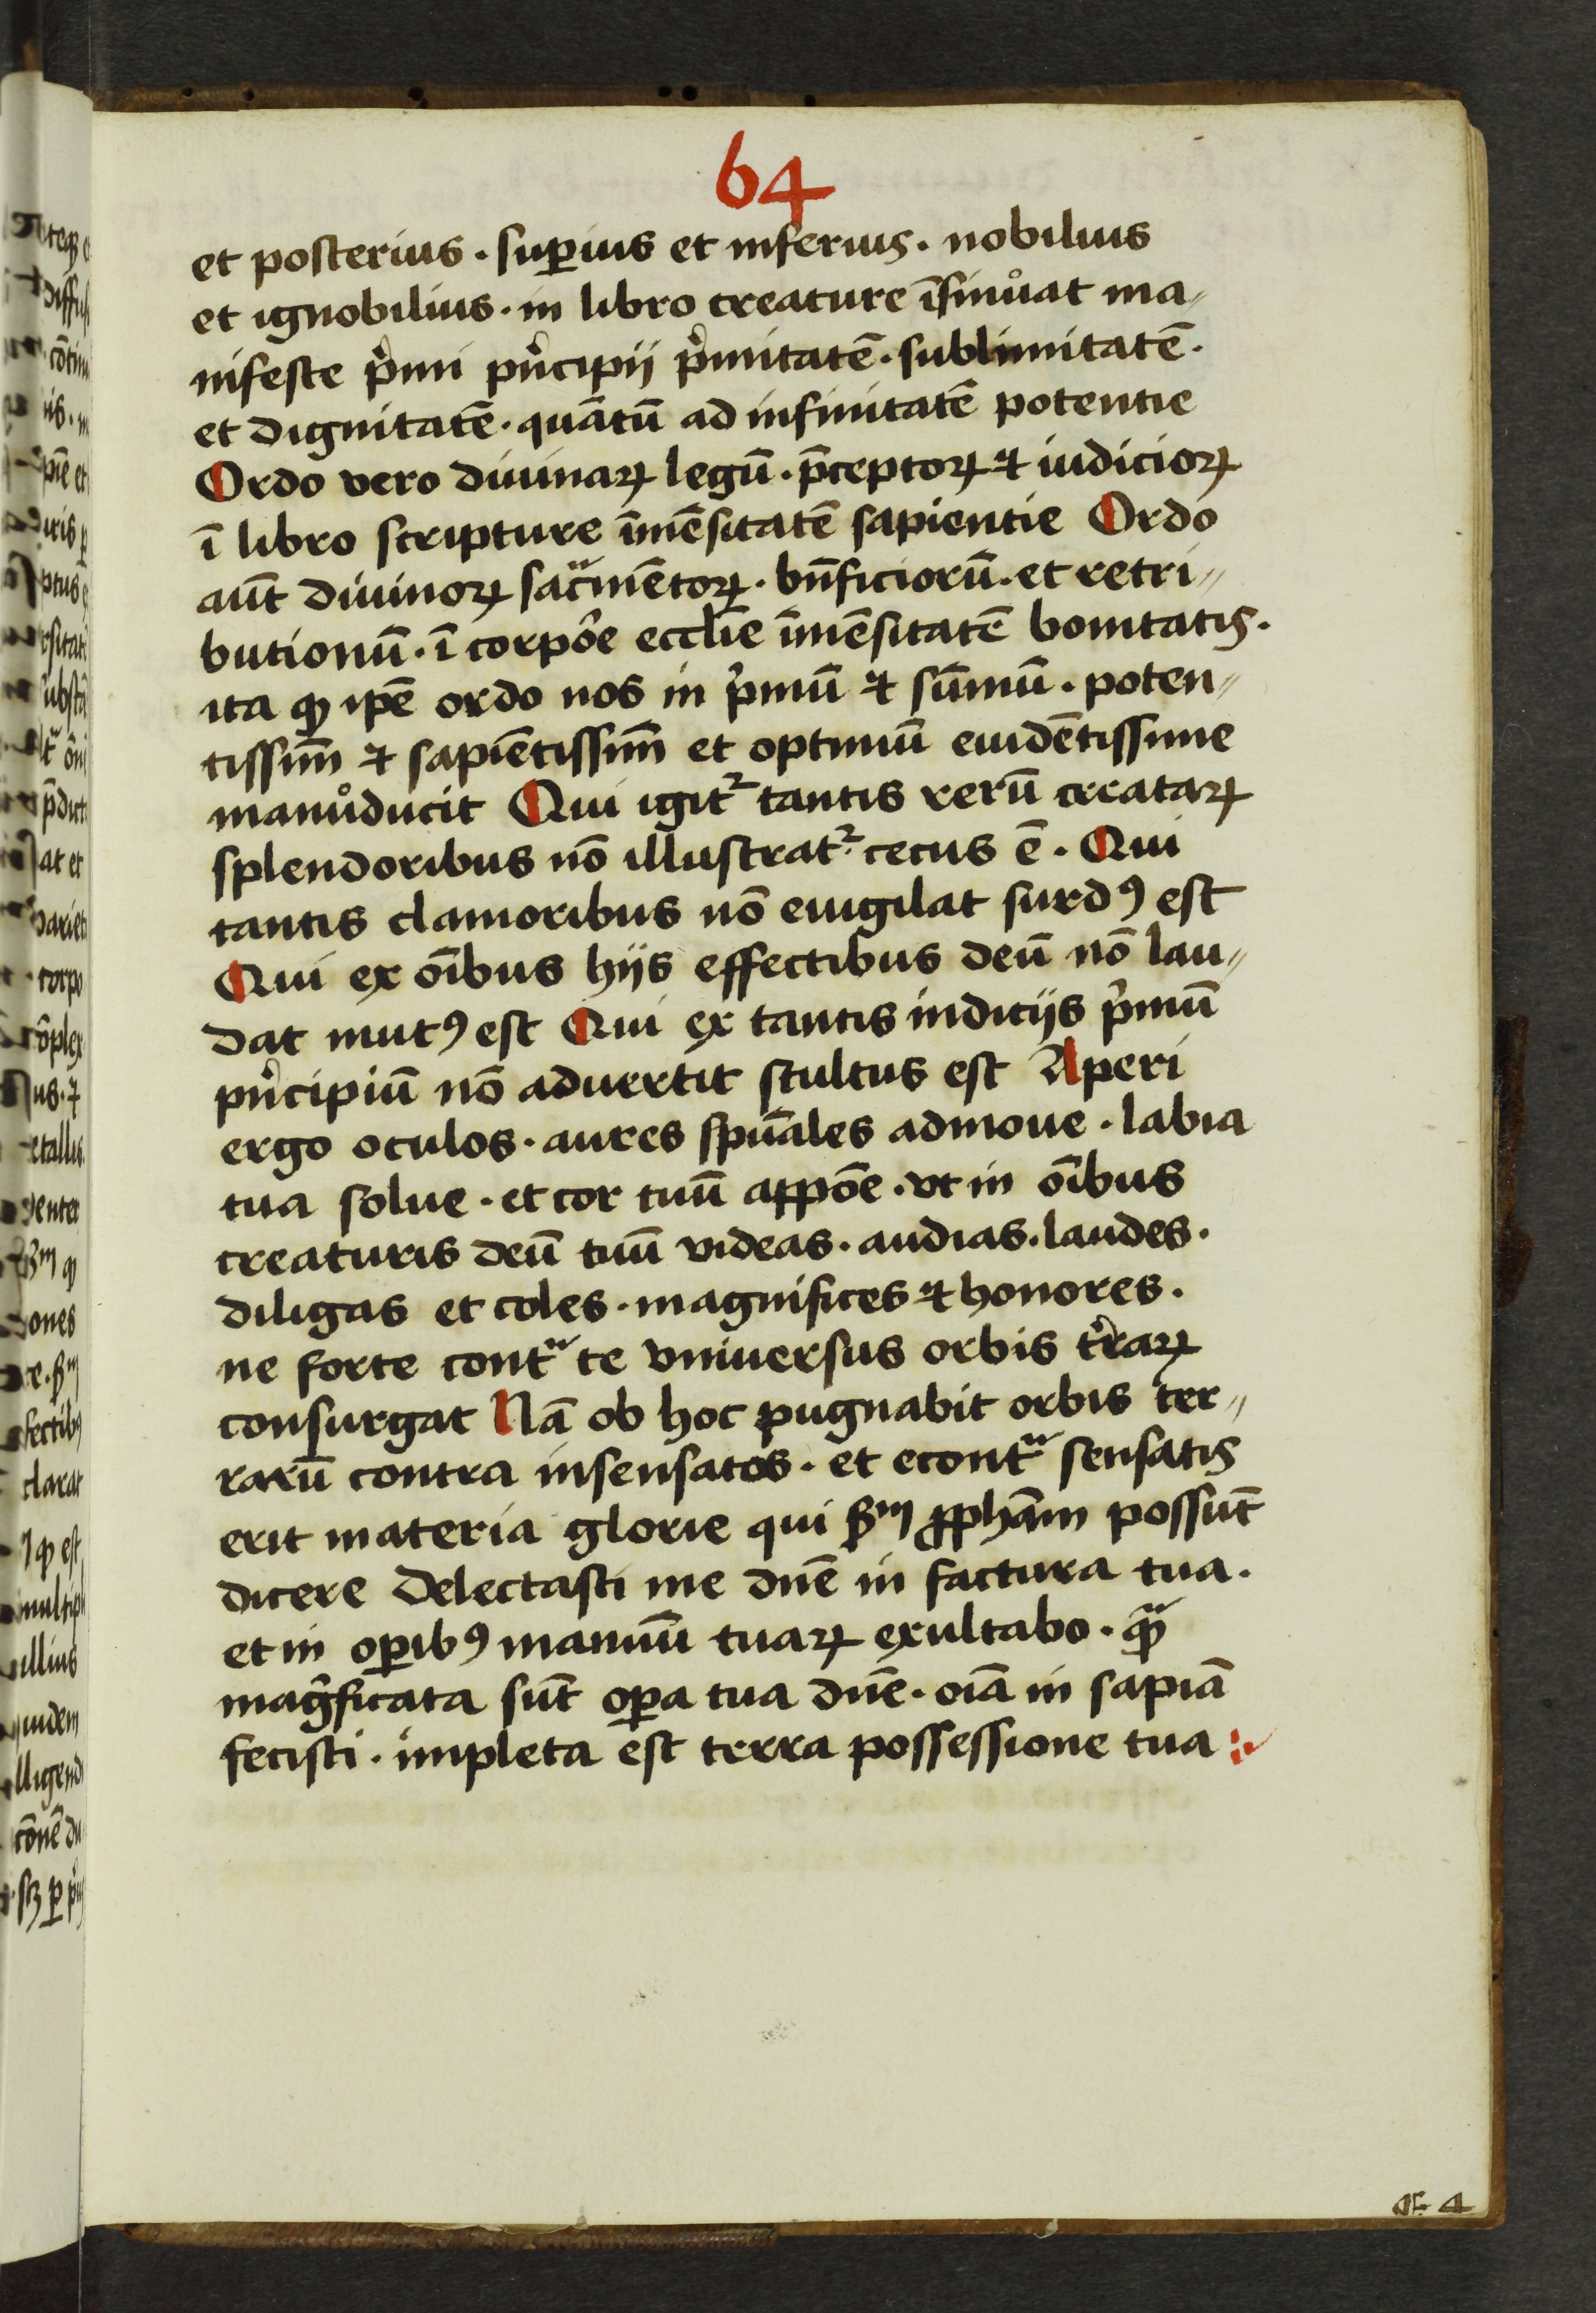 64
et posterius . sup̄ius et inferius . nobilius
et ignobilius . in libro creature īsinůat ma〃
nifeste pͥmi pͥncipij pͥmitatē . sublimitatē .
et dignitatē . quātū ad infinitatē potentie
Ordo vero diuinaꝝ legū . p̄ceptoꝝ ⁊ iudicioꝝ
ī libro scripture īmēsitatē sapientie Ordo
aūt diuinoꝝ sacͣmētoꝝ . bn̄ficiorū . et retri〃
butionū . ī corpōe eccl̄ie īmēsitatē bonitatis .
ita ꝙ ip̄e ordo nos in pͥmū ⁊ sūmū . poten〃
tissim̄ ⁊ sapiētissim̄ et optimū euidētissime
manůducit Qui igit᷑ tantis rerū creataꝝ
splendoribus nō illustrat᷑ . cecus ē . Qui
tantis clamoribus nō euigilat surdꝰ est
Qui ex oībus hijs effectibus deū nō lau〃
dat mutꝰ est Qui ex tantis indicijs pͥmū
pͥncipiū nō aduertit stultus est Aperi
ergo oculos . aures spūales admoue . labia
tua solue . et cor tuū appōe . vt in oībus
creaturis deū tuū videas . audias . laudes .
diligas et coles . magnifices ⁊ honores .
ne forte contͣ te vniuersus orbis t̾raꝝ
consurgat Nā ob hoc pugnabit orbis ter〃
rarū contra insensatos . et econtͣ sensatis
erit materia glorie qui ẜm ꝓph̄am possūt
dicere Delectasti me dn̄e in factura tua .
et in oꝑibꝰ manuū tuaꝝ exultabo . qͣꝫ
magͥficata sūt oꝑa tua dn̄e . oīa in sapīa
fecisti . impleta est terra possessione tua :.
4